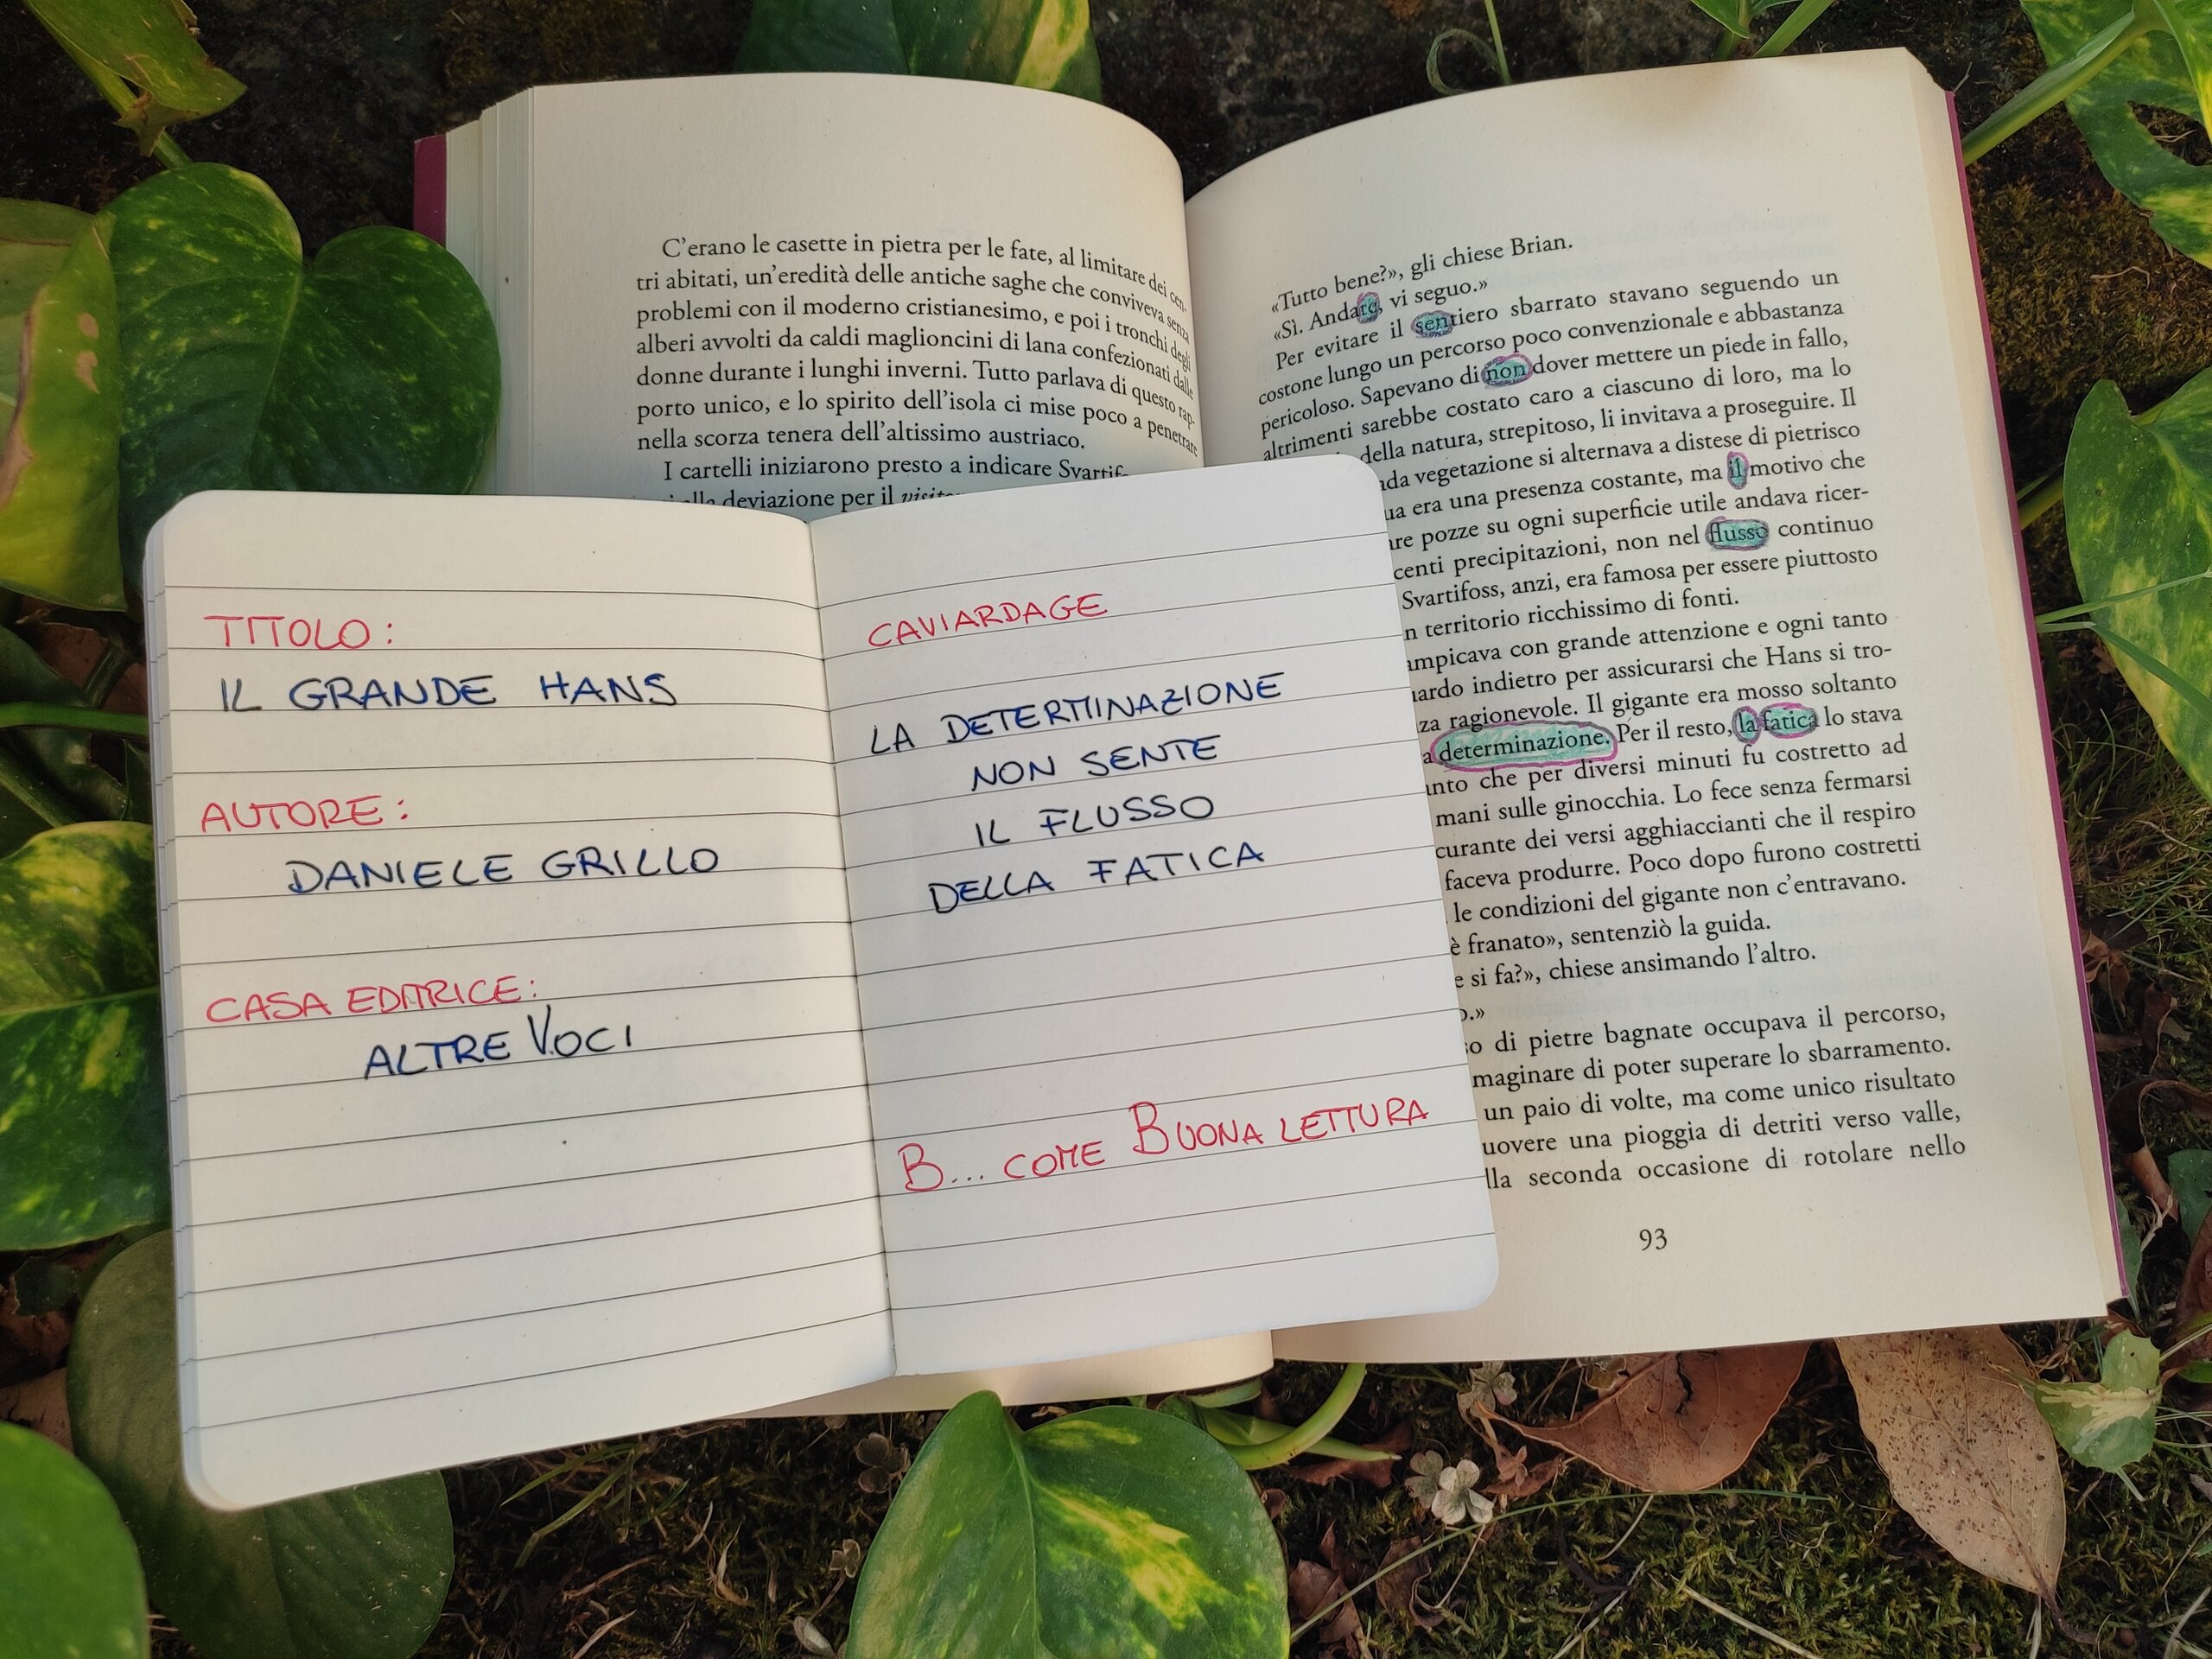 C'erano le casette in pietra per le fate, al limitare dei cen-
tri abitati, un'eredità delle antiche saghe che conviveva senza
problemi con il moderno cristianesimo, e poi i tronchi degli
alberi avvolti da caldi maglioncini di lana confezionati dalle
donne durante i lunghi inverni. Tutto parlava di questo rap-
porto unico, e lo spirito dell'isola ci mise poco a penetrare
nella scorza tenera dell'altissimo austriaco.
I cartelli iniziarono presto a indicare Svartif
deviazione per il
«Tutto bene?», gli chiese Brian.
«Sì. Andate, vi seguo.»
Per evitare il sentiero sbarrato stavano seguendo un
costone lungo un percorso poco convenzionale e abbastanza
pericoloso. Sapevano di non dover mettere un piede in fallo,
altrimenti sarebbe costato caro a ciascuno di loro, ma lo
della natura, strepitoso, li invitava a proseguire. Il
da vegetazione si alternava a distese di pietrisco
ua era una presenza costante, ma il motivo che
re pozze su ogni superficie utile andava ricer-
centi precipitazioni, non nel flusso continuo
Svartifoss, anzi, era famosa per essere piuttosto
n territorio ricchissimo di fonti.
mpicava con grande attenzione e ogni tanto
ardo indietro per assicurarsi che Hans si tro-
za ragionevole. Il gigante era mosso soltanto
a determinazione. Per il resto, la fatica lo stava
nto che per diversi minuti fu costretto ad
mani sulle ginocchia. Lo fece senza fermarsi
curante dei versi agghiaccianti che il respiro
faceva produrre. Poco dopo furono costretti
le condizioni del gigante non c'entravano.
è franato», sentenziò la guida.
e si fa?», chiese ansimando l'altro.
o.»
so di pietre bagnate occupava il percorso,
maginare di poter superare lo sbarramento.
un paio di volte, ma come unico risultato
uovere una pioggia di detriti verso valle,
lla seconda occasione di rotolare nello
93
TITOLO:
IL GRANDE HANS
AUTORE:
DANIELE GRILLO
CASA EDITRICE:
ALTRE VOCI
CAVIARDAGE
LA DETERMINAZIONE
NON SENTE
IL FLUSSO
DELLA FATICA
B... COME BUONA LETTURA